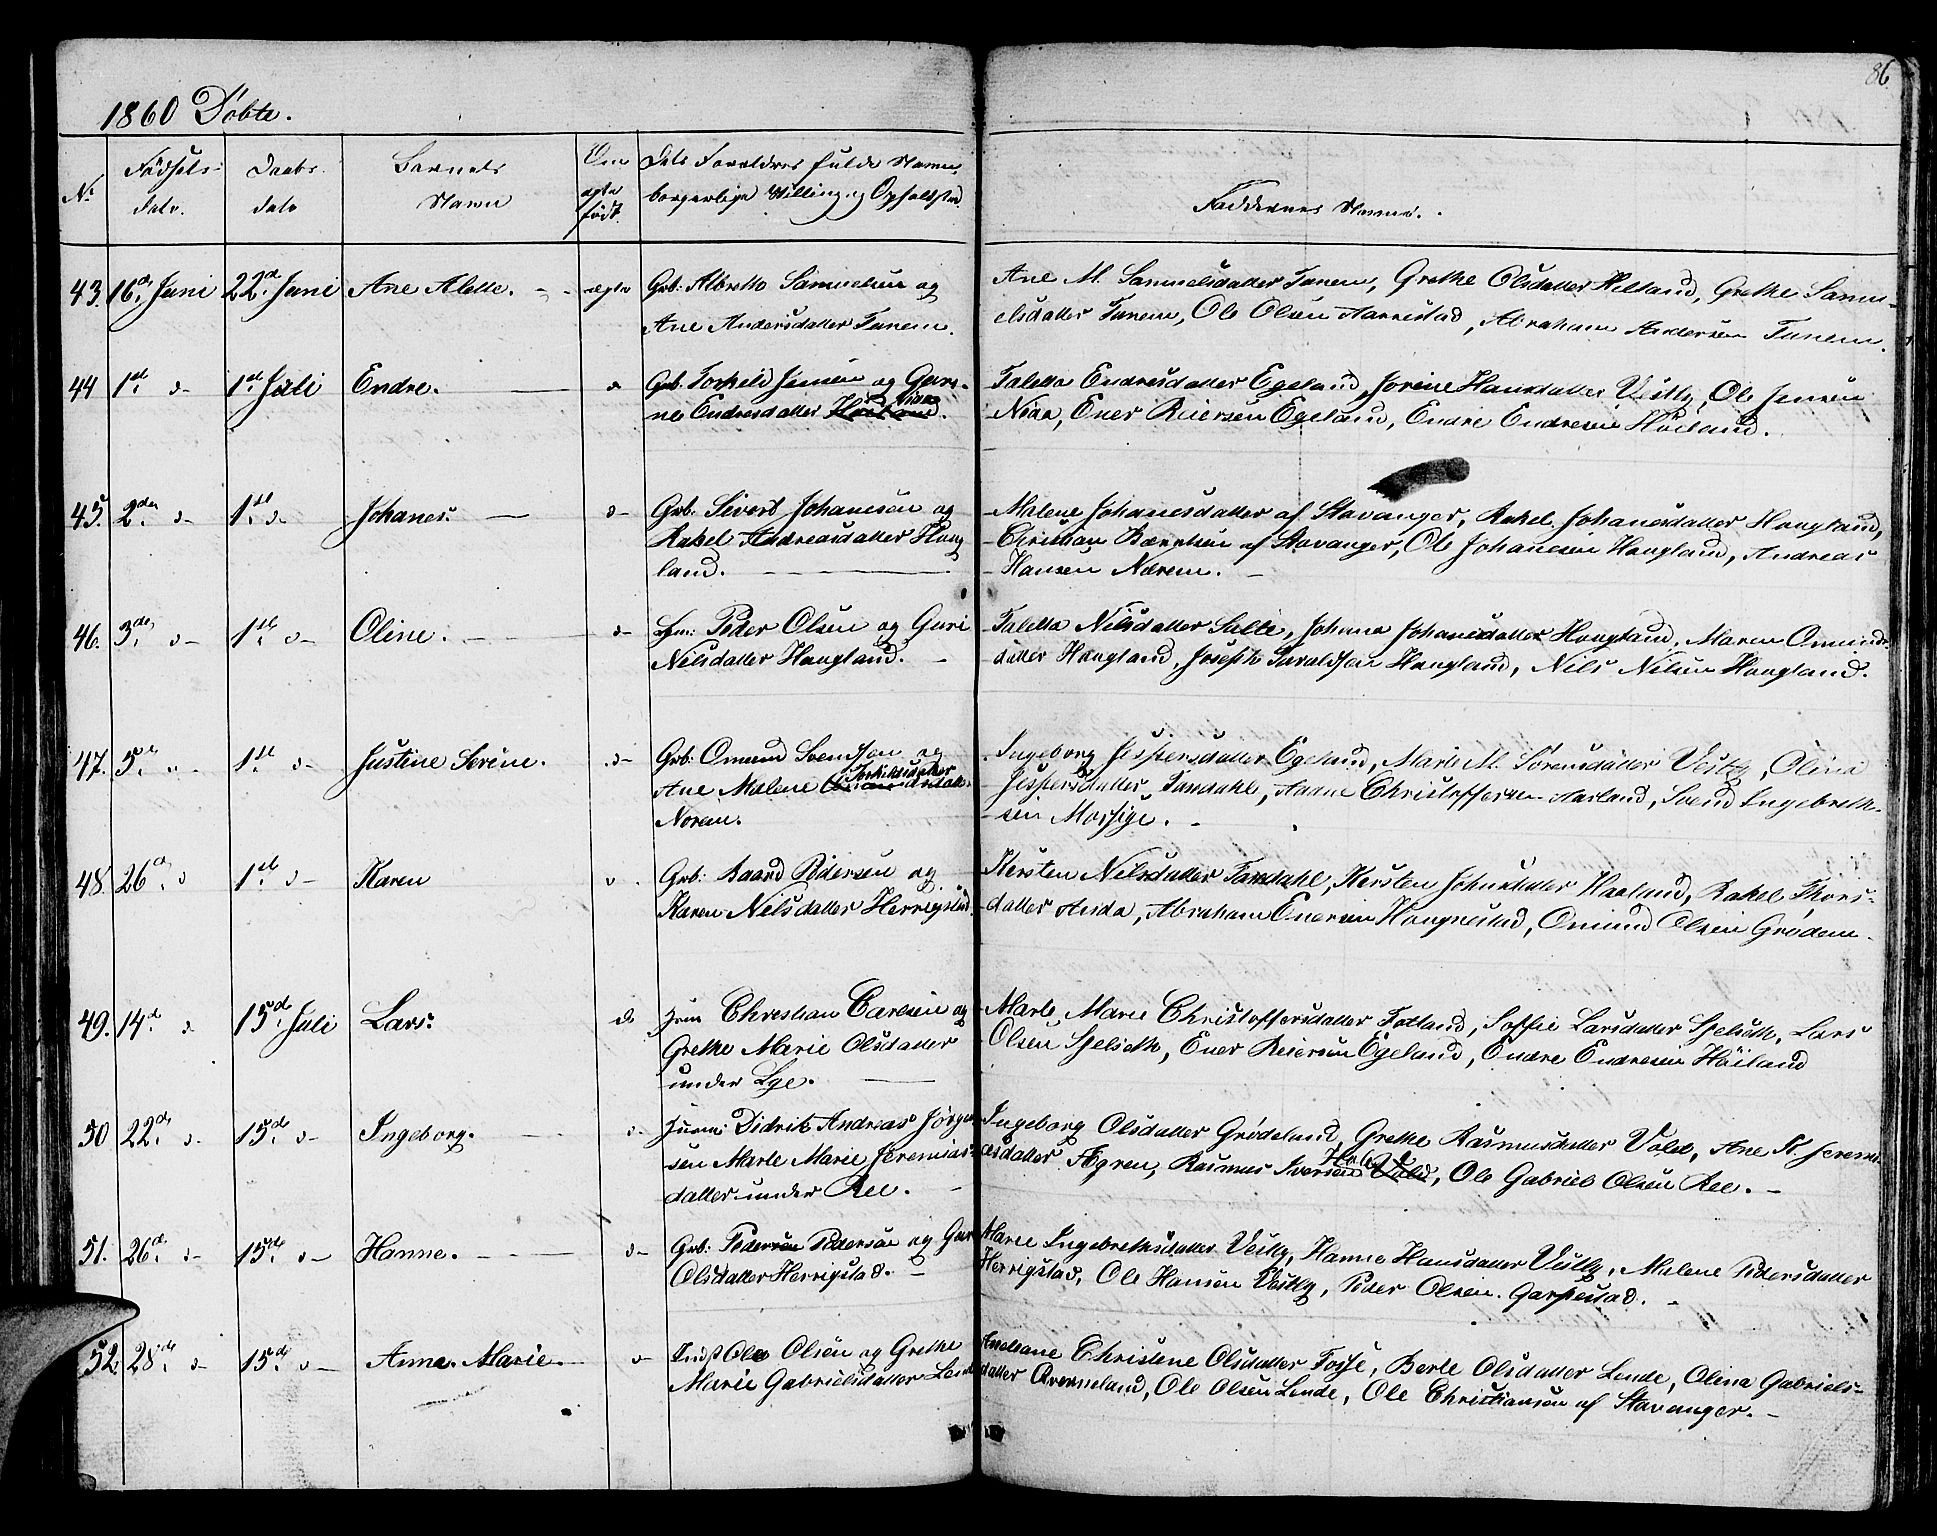 86
1860 Döbte.
No Födsels dato. Daabs dato Barnets Navn Om ægte födt. Dets Forældres fulde Navne, borgerlige Stilling og Opholdsted. Faddernes Navne.
43. 16de Juni 22d. Juni Ane Alette. ægte Grb: Albretto Samuelsen og
Ane Andersdatter Tunem.
Ane M. Samuelsdatter Tunem, Grethe Olsdatter Helland, Grethe Samu-
elsdatter Tunem, Ole Olsen Harrestad, Abraham Andersen Tunem.
44 1st d- 1st Juli Endre. d Grb. Torkild Jensen og Guru-
ne Endresdatter Höiland.
Taletta Endresdatter Egeland, Jorine Hansdatter Vestly, Ole Jensen
Niaa, Ener Reiersen Egeland, Endre Endresen Höiland.
45. 2den d- 1st d- Johanes. d- Grb. Sivert Johanesen og
Rakel Andreasdatter Houg
land.
Malene Johanesdatter af Stavanger, Rakel Johanesdatter Hougland,
Christian Berntsen af Stavanger, Ole Johanesen Hougland, Andreas
Hansen Nærem.
46. 3de d- 1st d- Oline. d- Hm: Peder Olsen og Guri
Nilsdatter Hougland.
Taletta Nilsdatter Salte, Johana Johanesdatter Hougland, Maren Omunds-
datter Hougland, Joseph Taraldsen Hougland, Nils Nilsen Hougland.
47. 5te d- 1st d- Justine Serine. d- Grb: Omund Svendsen og
Ane Malene Torkildsdatter
Norem.
Ingeborg Jespersdatter Egeland, Marte M. Sörensdatter Vestly, Olina
Jespersdatter Tandahl, Aadne Christoffersen Aarland, Svend Ingebreth-
sen Mossige.
48. 26de d 1st d- Karen d Grb: Baard Pedersen og
Karen Nilsdatter Herrigstad
Kersten Nilsdatter Tandahl, Kersten Johnsdatter Haaland, Rakel Thors-
datter Anda, Abraham Enersen Hougnestad, Omund Olsen Gröden.
49. 14d d 15d Juli Lars. d Inn Christian Carlsen og
Grethe Marie Olsdatter
under Lye.
Marte Marie Christoffersdatter Fotland, Soffie Larsdatter Spelseth, Lars
Olsen Spelseth, Ener Reiersen Egeland, Endre Endresen Höiland
50 22de d- 15d d- Ingeborg. d- Inn: Didrik Andreas Jörgen
sen Marte Marie Jeremias-
datter under Ree.
Ingeborg Olsdatter Grödeland, Grethe Rasmusdatter Vold, Ane N. Jeremi-
asdatter Ægren, Rasmus Iversen Vold, Ole Gabriel Olsen Ree.
51. 26d. d- 15de d- Hanne. d- Grb: Pedersen Pedersen og Guri
Olsdatter Herrigstad.
Marie Ingebrethsdatter Vestly, Hanne Hansdatter Vestly, Malene Pedersdatter
Herrigstad, Ole Hansen Vestly, Peder Olsen Garpestad.
52. 28de d- 15de d- Anne Marie. d- Inds Ole Olsen og Grethe
Marie Gabrielsdatter Lende
Christene Olsdatter Fosse, Berte Olsdatter Lende, Olina Gabriels-
datter Qverneland, Ole Olsen Lende, Ole Christiansen af Stavanger.